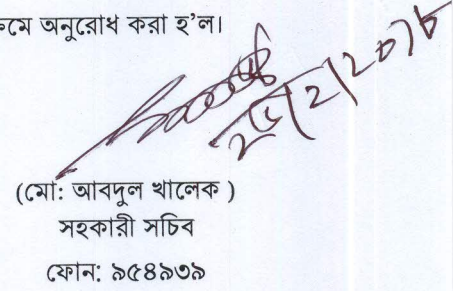 ক্রমে অনুরোধ করা হ'ল।
(মো: আবদুল খালেক )
সহকারী সচিব
ফোন: ৯৫৪৯৩৯